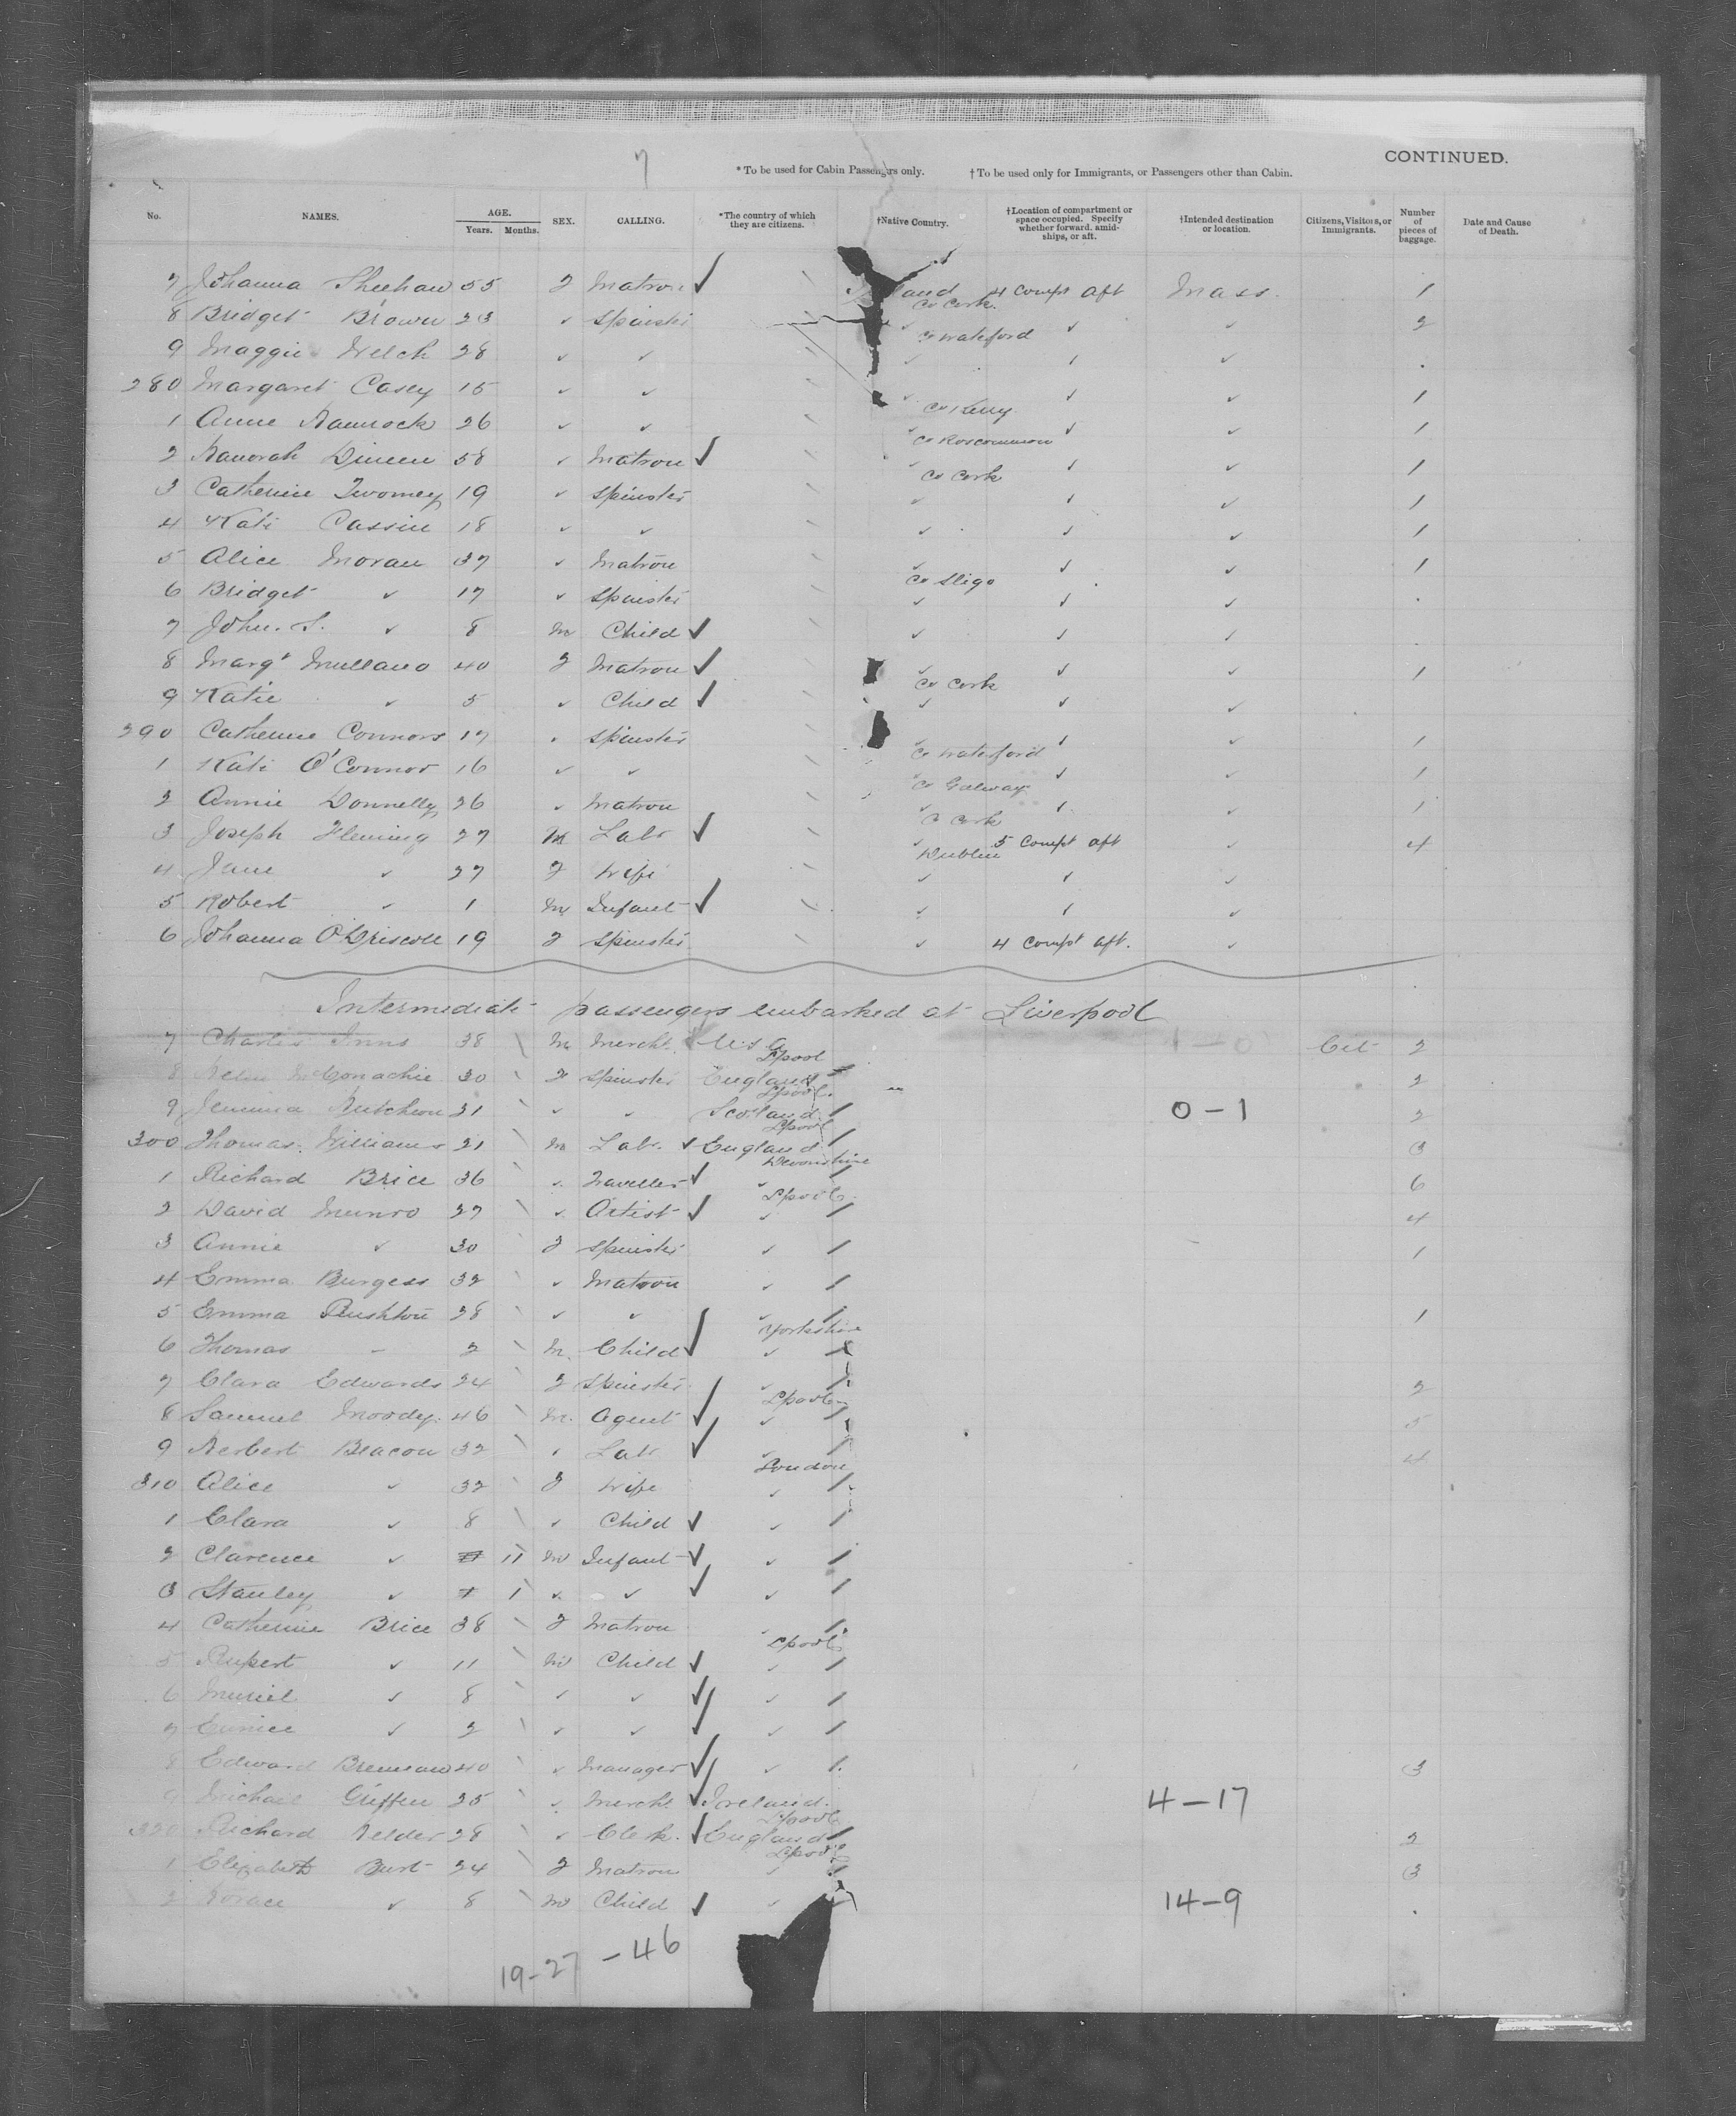 7
CONTINUED.
* To be used for Cabin Passengers only. † To be used only for Immigrants, or Passengers other than Cabin.
No. NAMES. AGE. Years. Months. SEX. CALLING. *The country of which they are citizens. †Native Country. †Location of compartment or space occupied. Specify whether forward, amidships, or aft. †Intended destination or location. Citizens, Visitors, or Immigrants. Number of pieces of baggage. Date and Cause of Death.
7 Johanna Sheehan 55 f Matron ✓ 4 Compt aft Mass. 1
Co Cork
8 Bridget Brown 23 ✓ Spinster ✓ ✓ ✓ 2
Co Waterford
9 Maggie Welch 28 ✓ ✓ ✓ ✓ ✓
280 Margaret Casey 15 ✓ ✓ ✓ ✓ ✓ 1
Co Kerry
1 Anne Hannock 26 ✓ ✓ ✓ ✓ ✓ 1
Co Roscommon
2 Hanorah Dineen 58 ✓ Matron ✓ ✓ ✓ ✓ 1
Co Cork
3 Catherine Twomey 19 ✓ Spinster ✓ ✓ ✓ 1
4 Kate Cassin 18 ✓ ✓ ✓ ✓ ✓ 1
5 Alice Moran 37 ✓ Matron ✓ ✓ ✓ 1
Co Sligo
6 Bridget ✓ 17 ✓ Spinster ✓ ✓ ✓
7 John. S. ✓ 8 m Child ✓ ✓ ✓ ✓
8 Margt Mullano 40 f Matron ✓ ✓ ✓ ✓ 1
Co Cork
9 Katie ✓ 5 ✓ Child ✓ ✓ ✓ ✓
290 Catherine Connors 17 ✓ Spinster ✓ ✓ ✓ 1
Co Waterford
1 Kate O'Connor 16 ✓ ✓ ✓ ✓ ✓ 1
Co Galway
2 Annie Donnelly 26 ✓ Matron ✓ ✓ ✓ 1
Co Cork
3 Joseph Fleming 27 M Labr ✓ ✓ 5 Compt aft ✓ 4
Dublin
4 Jane ✓ 27 f Wife ✓ ✓ ✓
5 Robert ✓ 1 m Infant ✓ ✓ ✓ ✓
6 Johanna O'Driscoll 19 f Spinster ✓ 4 Compt aft. ✓
Intermediate passengers embarked at Liverpool
7 Charles Inns 38 m Mercht. U.S.A 1-0 Cit 2
Lpool
8 McConachie 30 f Spinster England 2
Lpool
9 Jemima Hutcheon 31 ✓ ✓ Scotland 0-1 2
Lpool
300 Thomas Williams 21 m Labr. ✓ England 3
Devonshire
1 Richard Brice 36 ✓ Traveller ✓ ✓ 6
Lpool
2 David Munro 27 ✓ Artist ✓ ✓ 4
3 Annie ✓ 30 f Spinster ✓ 1
4 Emma Burgess 32 ✓ Matron ✓
5 Emma Rushton 28 ✓ ✓ ✓ 1
Yorkshire
6 Thomas - 2 m. Child ✓ ✓
7 Clara Edwards 24 f Spinster ✓ 2
Lpool
8 Samuel Moody. 46 m. Agent ✓ ✓ 5
9 Herbert Beacon 32 ✓ Labr ✓ ✓ 4
London
310 Alice ✓ 32 f Wife ✓
1 Clara ✓ 8 ✓ Child ✓ ✓
2 Clarence ✓ 11 m Infant ✓ ✓
3 Stanley ✓ 1 ✓ ✓ ✓ ✓
4 Catherine Brice 38 f Matron ✓
Lpool
5 Rupert ✓ 11 m Child ✓ ✓
6 Muriel ✓ 8 ✓ ✓ ✓ ✓
7 Eunice ✓ 2 ✓ ✓ ✓ ✓
8 Edward Brennan 40 ✓ Manager ✓ ✓ 3
9 Michael Griffen 35 ✓ Mercht ✓ Ireland. 4-17
Lpool
320 Richard Helder 28 ✓ Clerk. ✓ England 2
Lpool
1 Elizabeth Burt 24 f Matron ✓ 3
2 Horace ✓ 8 m Child ✓ ✓ 14-9
19-27-46